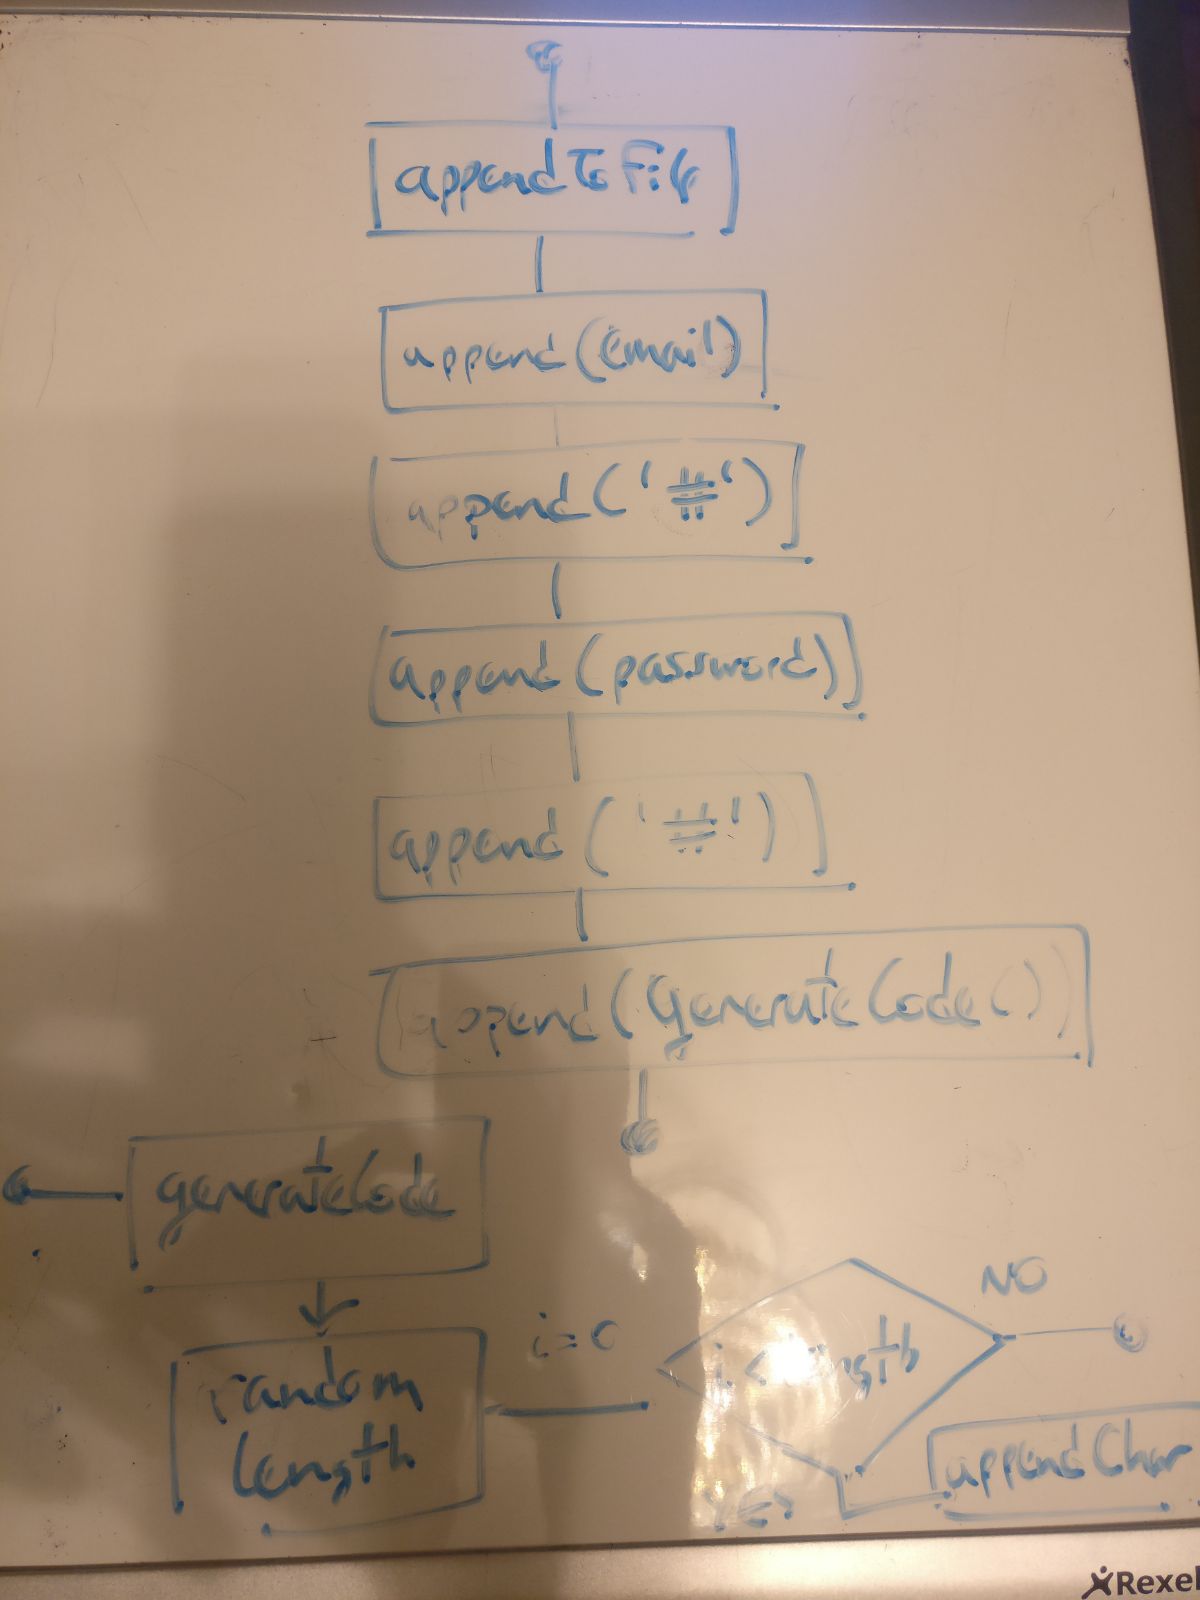 appendToFile
append(email)
append('#')
append(password)
append('#')
append(generateCode())
generateCode
random
length
i=0
i<length
NO
YES
appendChar
Rexel